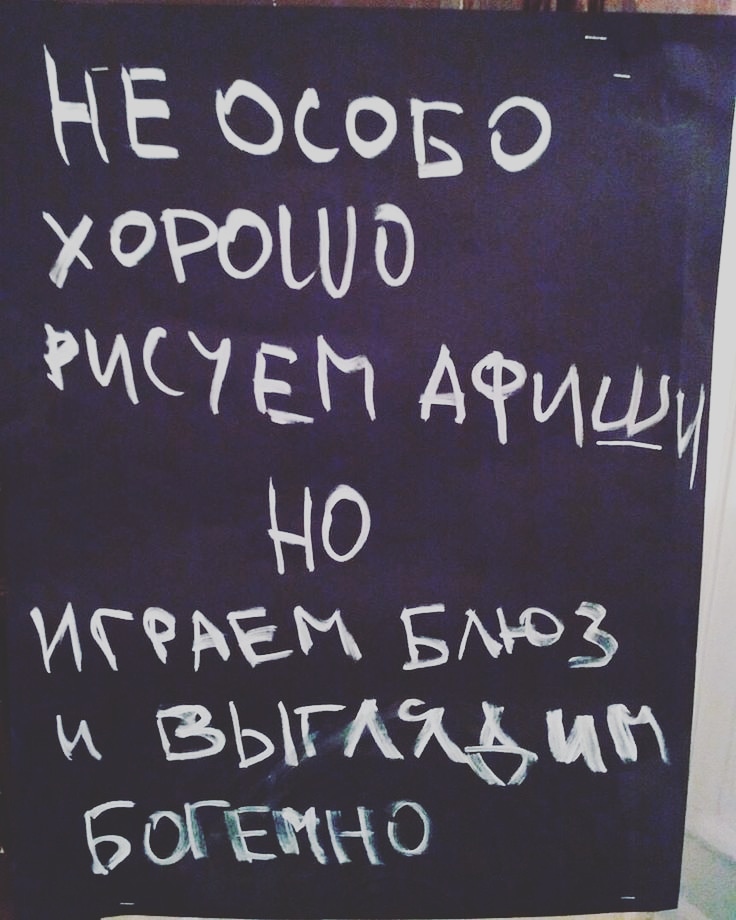 НЕ ОСОБО
ХОРОШО
РИСУЕМ АФИШИ
НО
ИГРАЕМ БЛЮЗ
И ВЫГЛЯДИМ
БОГЕМНО